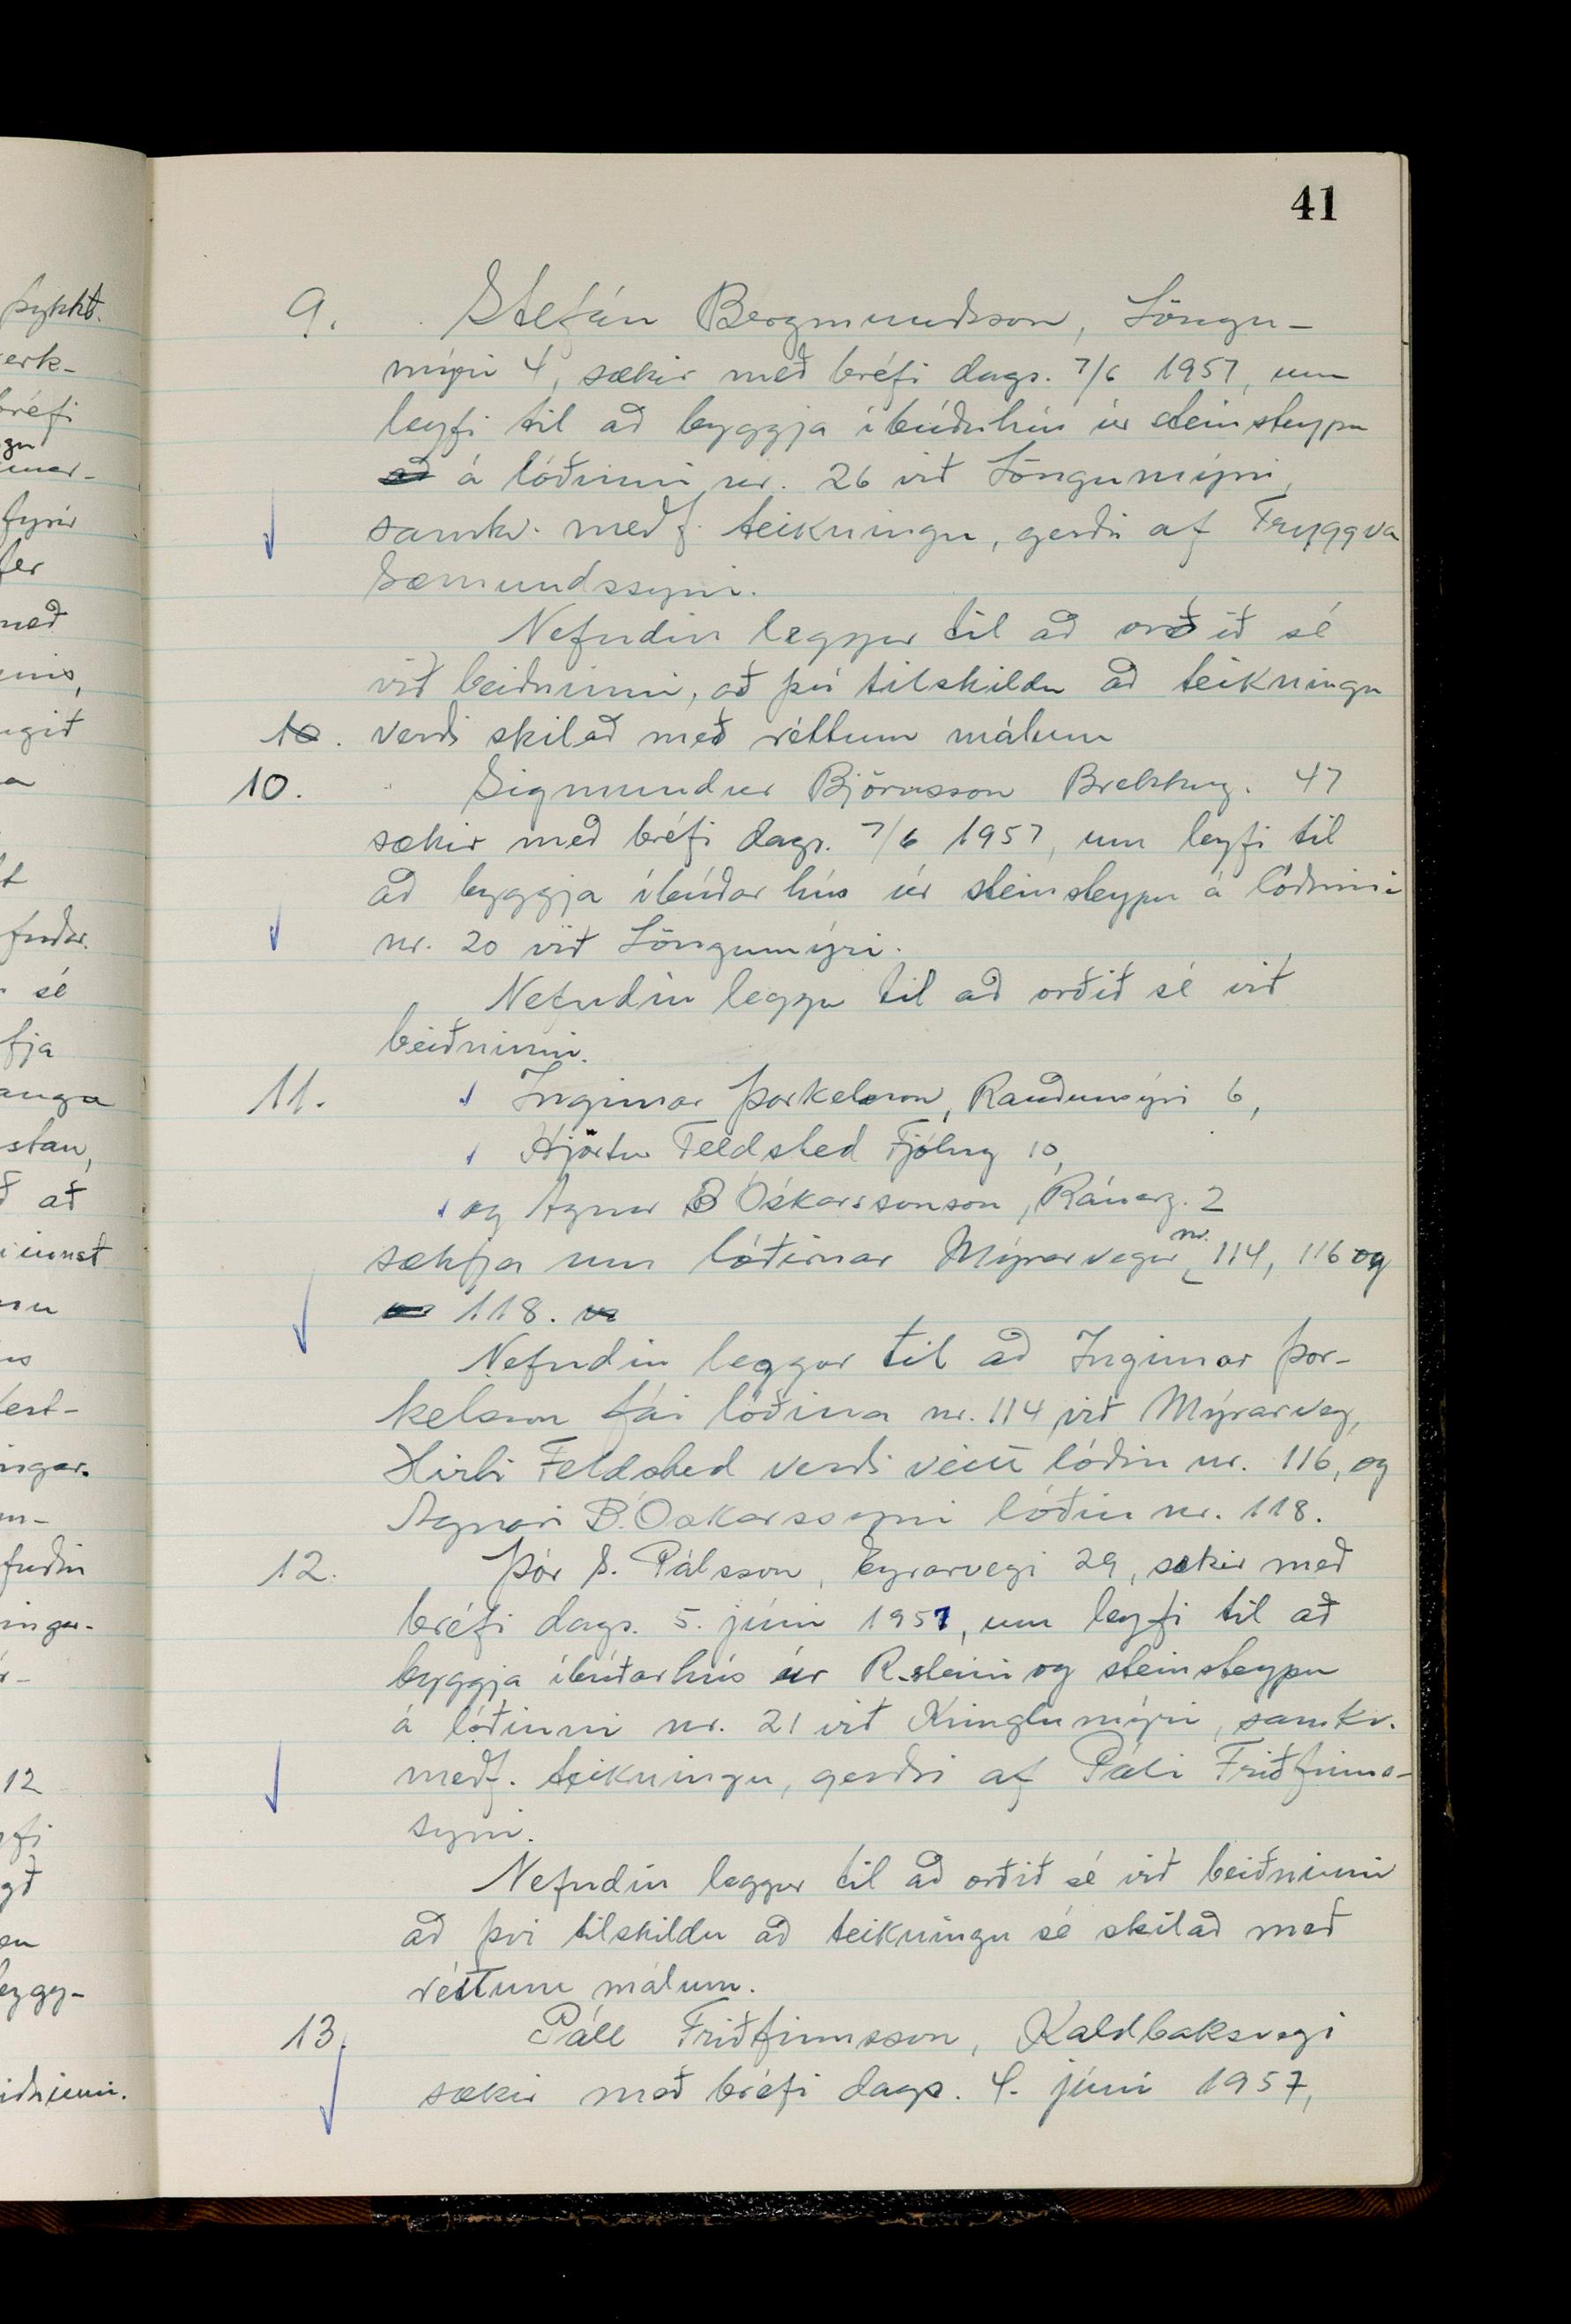 41
9. Stefán Bergmundsson, Löngu-
mýri 4, sækir með bréfi dags. 7/6 1957, um
leyfi til að byggja íbúðarhús úr steinsteypu
á lóðinni nr. 26 við Löngumýri,
samkv. meðf. teikningu, gerðri af Tryggva
Sæmundssyni.
Nefndin leggur til að orðið sé
við beiðninni, að því tilskildu að teikningu
10. verði skilað með réttum málum
10. Sigmundur Björnsson Brekkug. 47
sækir með bréfi dags. 7/6 1957, um leyfi til
að byggja íbúðarhús úr steinsteypu á lóðinni
nr. 20 við Löngumýri.
Nefndin leggur til að orðið sé við
beiðninni.
11. Ingimar Þorkelsson, Rauðumýri 6,
Hjörtur Feldsted Fjólug 10,
og Agnar B Óskarssonson, Ránarg. 2
sækja um lóðirnar Mýrarvegur nr. 114, 116 og
118.
Nefndin leggur til að Ingimar Þor-
kelsson fái lóðina nr. 114 við Mýrarveg,
Hirti Feldsted verði veitt lóðin nr. 116, og
Agnari B. Óskarssyni lóðin nr. 118.
12. Þór S. Pálsson, Eyrarvegi 29, sækir með
bréfi dags. 5. júní 1957, um leyfi til að
byggja íbúðarhús úr R-steini og steinsteypu
á lóðinni nr. 21 við Kringlumýri, samkv.
meðf. teikningu, gerðri af Páli Friðfinns-
syni.
Nefndin leggur til að orðið sé við beiðninni
að því tilskildu að teikningu sé skilað með
réttum málum.
13. Páll Friðfinnsson, Kaldbaksvegi
sækir með bréfi dags. 4. júní 1957,